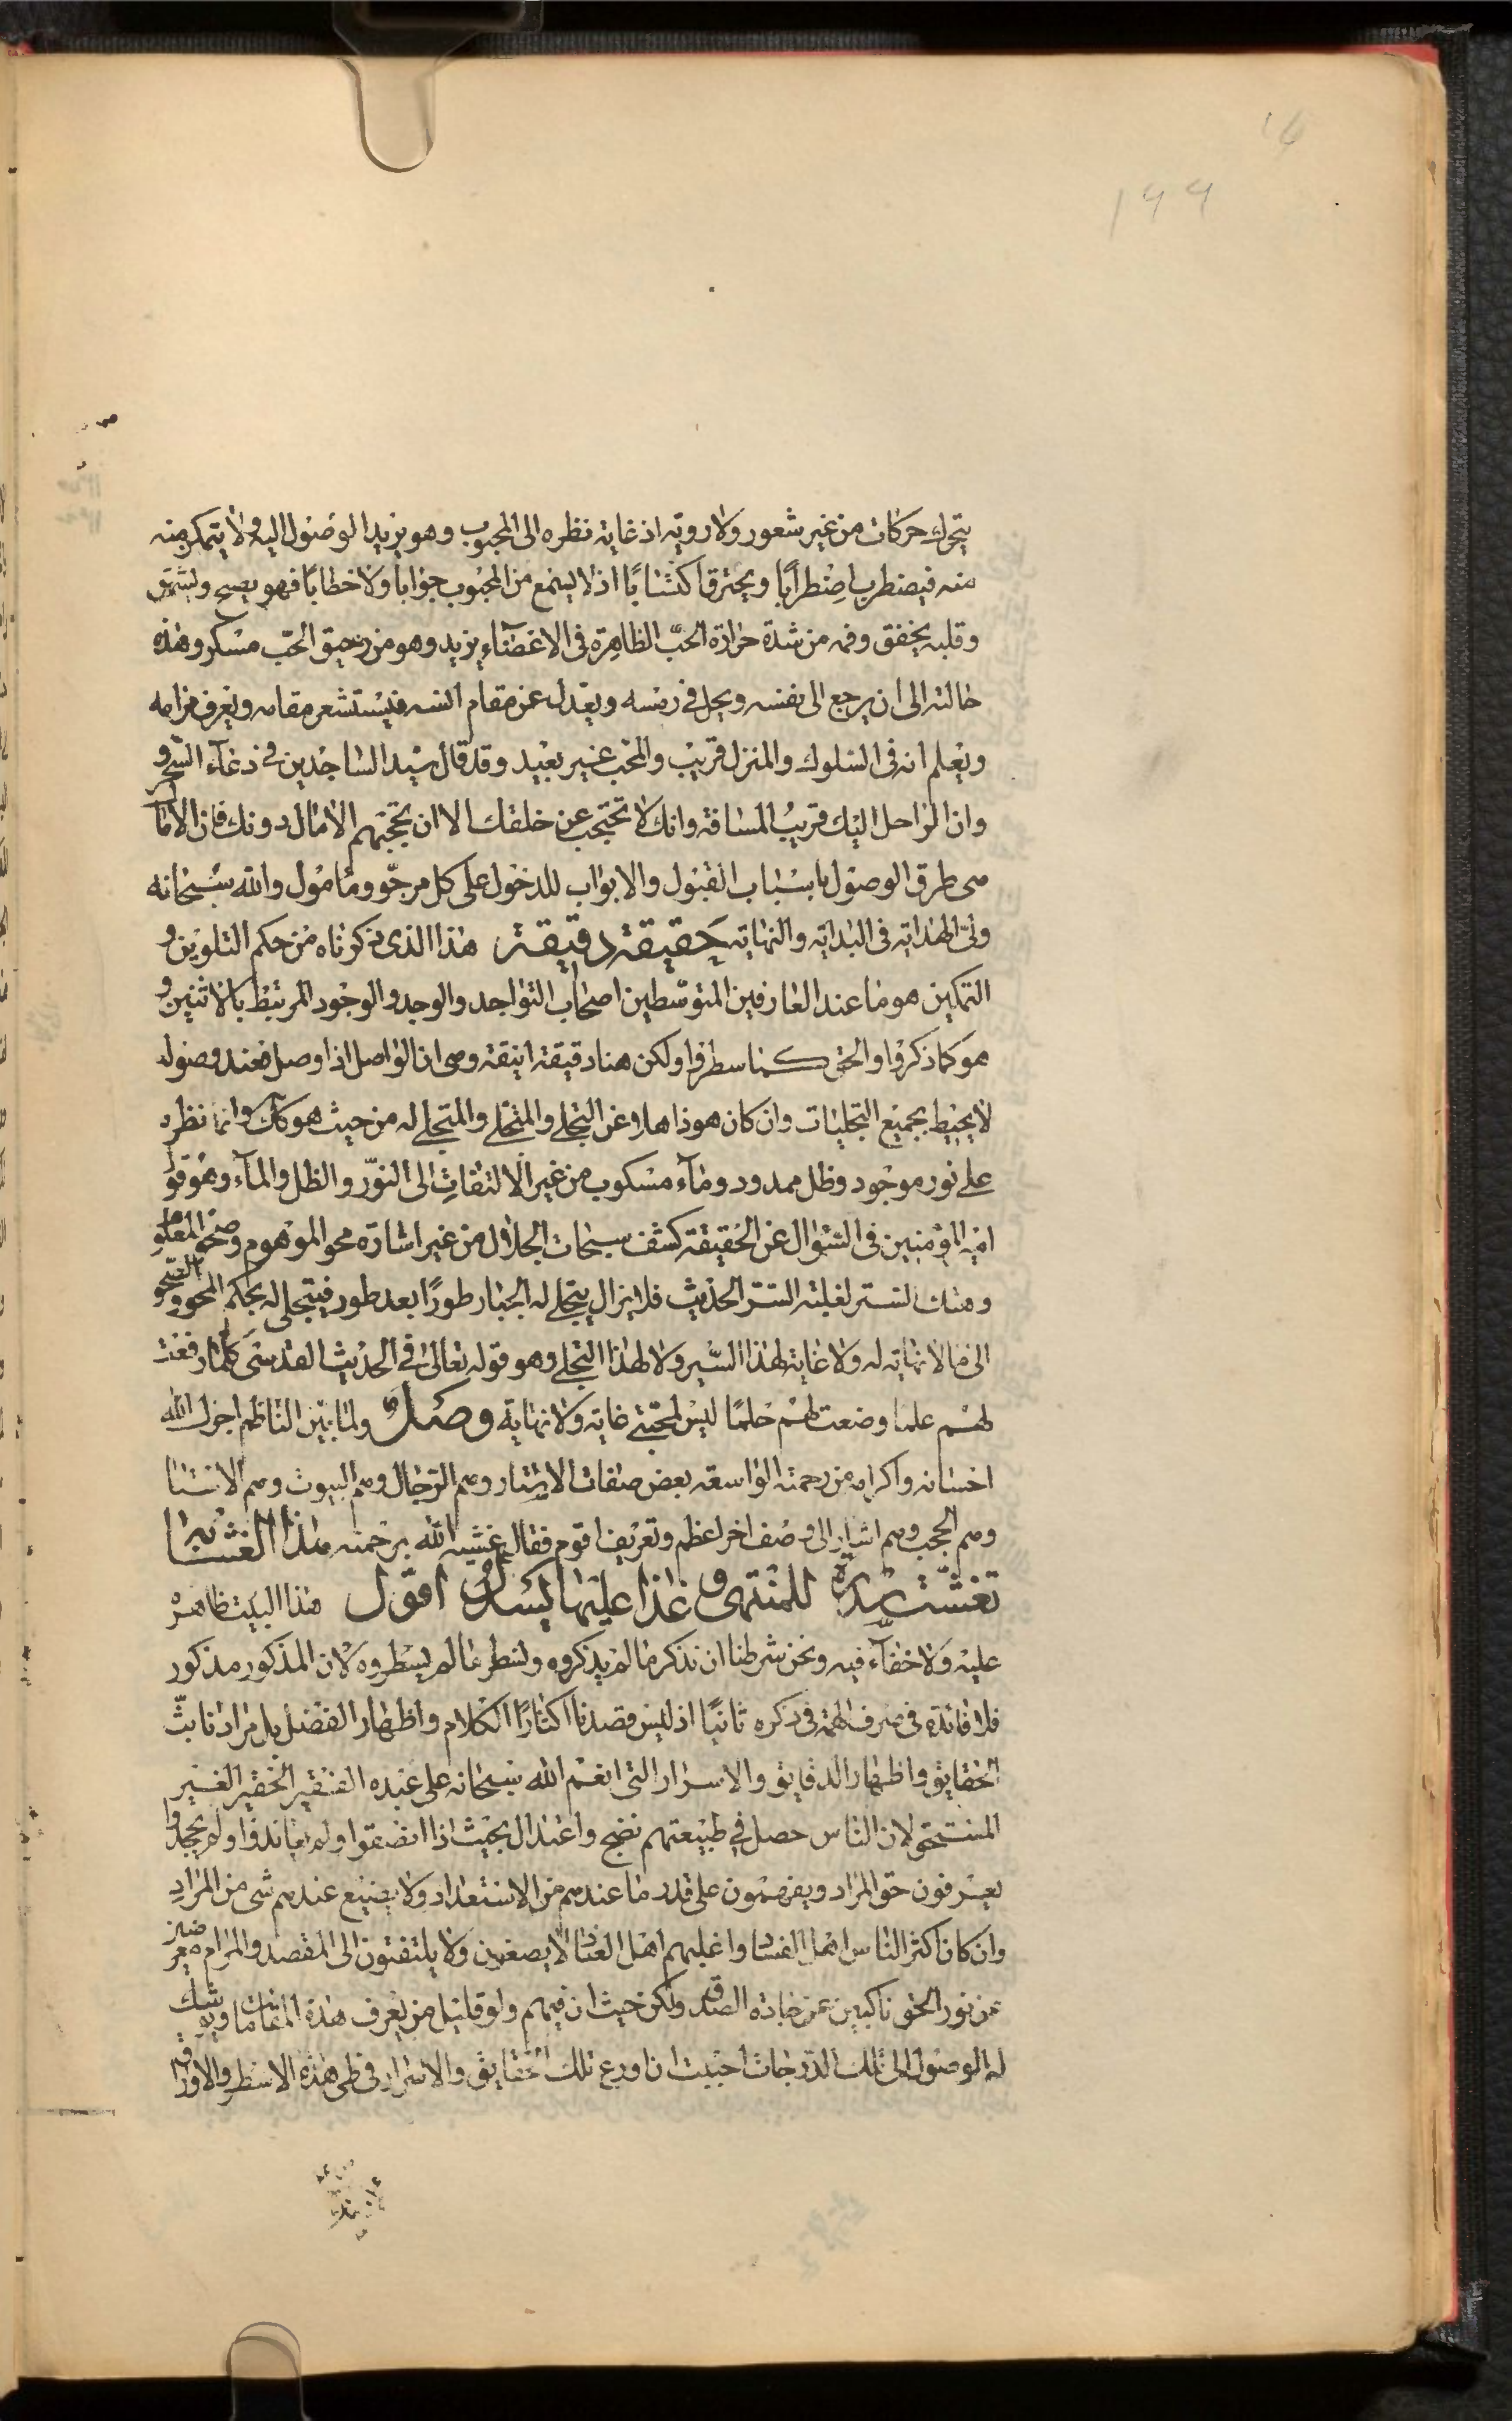 ١٩٩
يتحرك حركات من غير شعور ولا روية اذ غاية نظره الى المحبوب وهو يريد الوصول اليه ولا يتمكن منه
منه فيضطرب اضطرابا ويحترق اكتئابا اذ لا يسمع من المحبوب جوابا ولا خطابا فهو يصيح ويشهق
وقلبه يخفق وفمه من شدة حرارة الحب الظاهرة فى الاعضاء يزبد وهو من رحيق الحب مسكر وهذه
حالته الى ان يرجع الى نفسه ويحل فى رمسه ويعدل عن مقام انسه فيستشعر مقامه ويعرف مرامه
ويعلم انه فى السلوك والمنزل قريب والمحب غير بعيد وقد قال سيد الساجدين فى دعاء السحر و
وان الراحل اليك قريب المسافة وانك لا تحتجب عن خلقك الا ان تحجبهم الامال دونك فان الامال
هى طرق الوصول باسباب القبول والابواب للدخول على كل مرجو ومامول والله سبحانه
ولى الهداية فى البداية والنهاية حقيقة دقيقة هذا الذى ذكرناه من حكم التلوين و
التمكين هو ما عند العارفين المتوسطين اصحاب التواجد والوجد والوجود المرتبط بالاثنين و
هو كما ذكروا والحق كما سطروا ولكن هنا دقيقة انيقة وهى ان الواصل اذا وصل فعند وصوله
لا يحيط بجميع التجليات وان كان هو ذاهلا عن التجلى والمتجلى والمتجلى له من حيث هو كك وانما نظره
على نور موجود وظل ممدود وماء مسكوب من غير الالتفات الى النور والظل والماء وهو قول
امير المؤمنين فى السؤال عن الحقيقة كشف سبحات الجلال من غير اشارة محو الموهوم وصحو المعلوم
وهتك الستر لغلبة السر الحديث فلا يزال يتجلى له الجبار طورا بعد طور فيتجلى له بحكم المحو والصحو
الى ما لا نهاية له ولا غاية لهذا السير ولا لهذا التجلى وهو قوله تعالى فى الحديث القدسى كلما رفعت
لهم علما وضعت لهم حلما ليس لمحبتى غاية ولا نهاية وصل ولما بين الناظم اجزل الله
احسانه واكرامه من رحمته الواسعة بعض صفات الاستار وهم الرجال وهم البيوت وهم الاستا
وهم الحجب وهم اشار الى وصف اخر اعظم وتعريف اقوم فقال غشيه الله برحمته هذا الغشا
تغشت للمنتهى و غدا عليها يسدل اقول هذا البيت ظاهره
عليه ولا خفاء فيه ونحن شرطنا ان نذكر ما لم يذكروه ونسطر ما لم يسطروه لان المذكور مذكور
فلا فائدة فى صرف الهمة فى ذكره ثانيا اذ ليس قصدنا اكثارا الكلام واظهار الفضل بل مرادنا بث
الحقايق واظهار الدقايق والاسرار التى انعم الله سبحانه على عبده الفقير الحقير الغير
المستحق لان الناس حصل فى طبيعتهم نضج واعتدال بحيث اذا انصفوا ولم يعاندوا ولم يجحدوا
يعرفون حق المراد ويفهمون على قدر ما عندهم من الاستعداد ولا يضيع عندهم شى من المراد
وان كان اكثر الناس اهل الفساد واغلبهم اهل العناد لا يصغون ولا يلتفتون الى المقصد والمرام معرضين
عن نور الحق ناكبين عن جادة الصدق ولكن حيث ان فيهم ولو قليل من يعرف هذه المقامات ويوشك
له الوصول الى تلك الدرجات احببت ان اودع تلك الحقايق والاسرار فى طى هذه الاسطر والاوراق